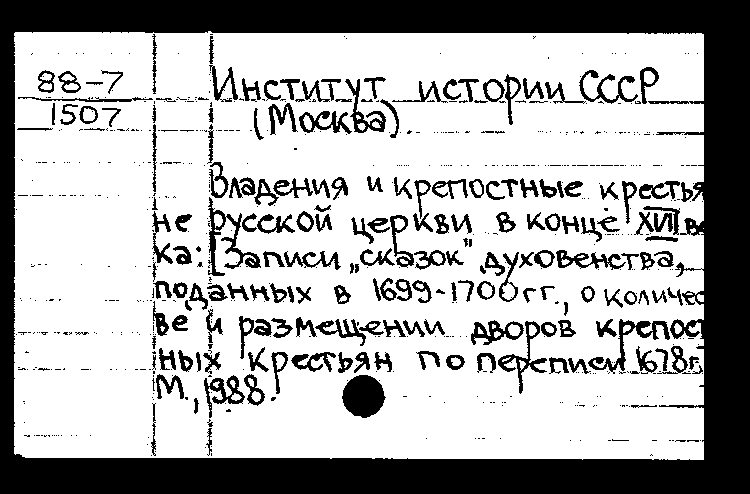 88-7
1507
Институт истории СССР
(Москва).
Владения и крепостные крестья
не русской церкви в конце XVII ве
ка: [Записи „сказок" духовенства,
поданных в 1699-1700 гг., о количес
ве и размещении дворов крепост
ных крестьян по переписи 1678г.
М., 1988.